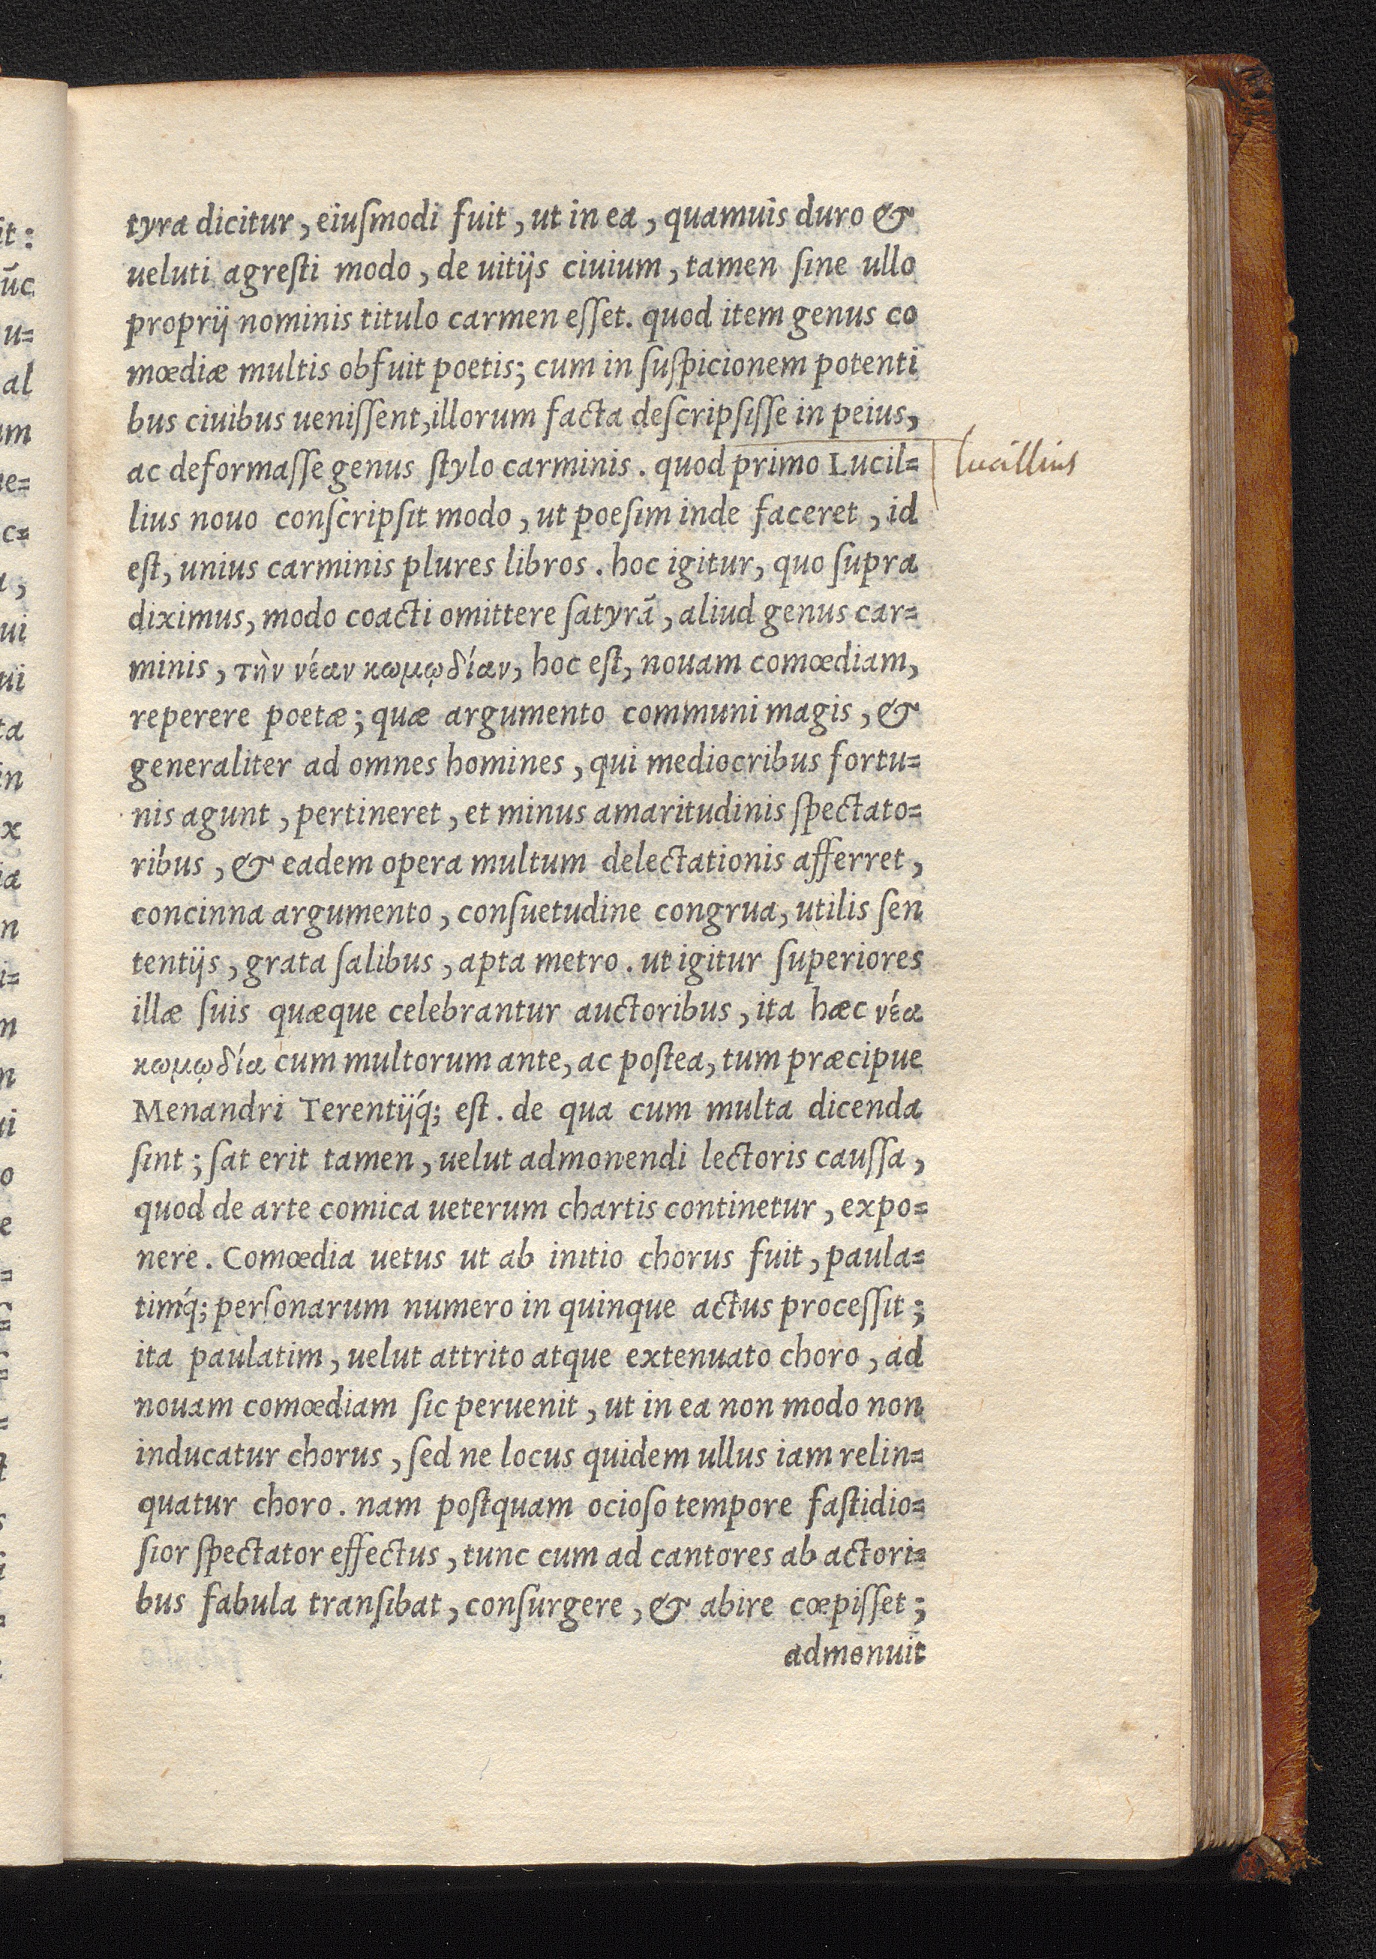 tyra dicitur, eiuſmodi fuit, ut in ea, quamuis duro &
ueluti agreſti modo, de uitijs ciuium, tamen ſine ullo
proprij nominis titulo carmen eſſet. quod item genus co
mœdiæ multis obfuit poetis; cum in ſuſpicionem potenti
bus ciuibus ueniſſent, illorum facta deſcripſiſſe in peius,
ac deformaſſe genus ſtylo carminis. quod primo Lucil=
lucillius
lius nouo conſcripſit modo, ut poeſim inde faceret, id
eſt, unius carminis plures libros. hoc igitur, quo ſupra
diximus, modo coacti omittere ſatyrā, aliud genus car=
minis, τὴν νέαν κωμῳδίαν, hoc eſt, nouam comœdiam,
reperere poetæ; quæ argumento communi magis, &
generaliter ad omnes homines, qui mediocribus fortu=
nis agunt, pertineret, et minus amaritudinis ſpectato=
ribus, & eadem opera multum delectationis afferret,
concinna argumento, conſuetudine congrua, utilis ſen
tentijs, grata ſalibus, apta metro. ut igitur ſuperiores
illæ ſuis quæque celebrantur auctoribus, ita hæc νέα
κωμῳδία cum multorum ante, ac poſtea, tum præcipue
Menandri Terentijq́; eſt. de qua cum multa dicenda
ſint; ſat erit tamen, uelut admonendi lectoris cauſſa,
quod de arte comica ueterum chartis continetur, expo=
nere. Comœdia uetus ut ab initio chorus fuit, paula=
timq́; perſonarum numero in quinque actus proceſſit;
ita paulatim, uelut attrito atque extenuato choro, ad
nouam comœdiam ſic peruenit, ut in ea non modo non
inducatur chorus, ſed ne locus quidem ullus iam relin=
quatur choro. nam poſtquam ocioſo tempore faſtidio=
ſior ſpectator effectus, tunc cum ad cantores ab actori=
bus fabula tranſibat, conſurgere, & abire cœpiſſet;
admonuit